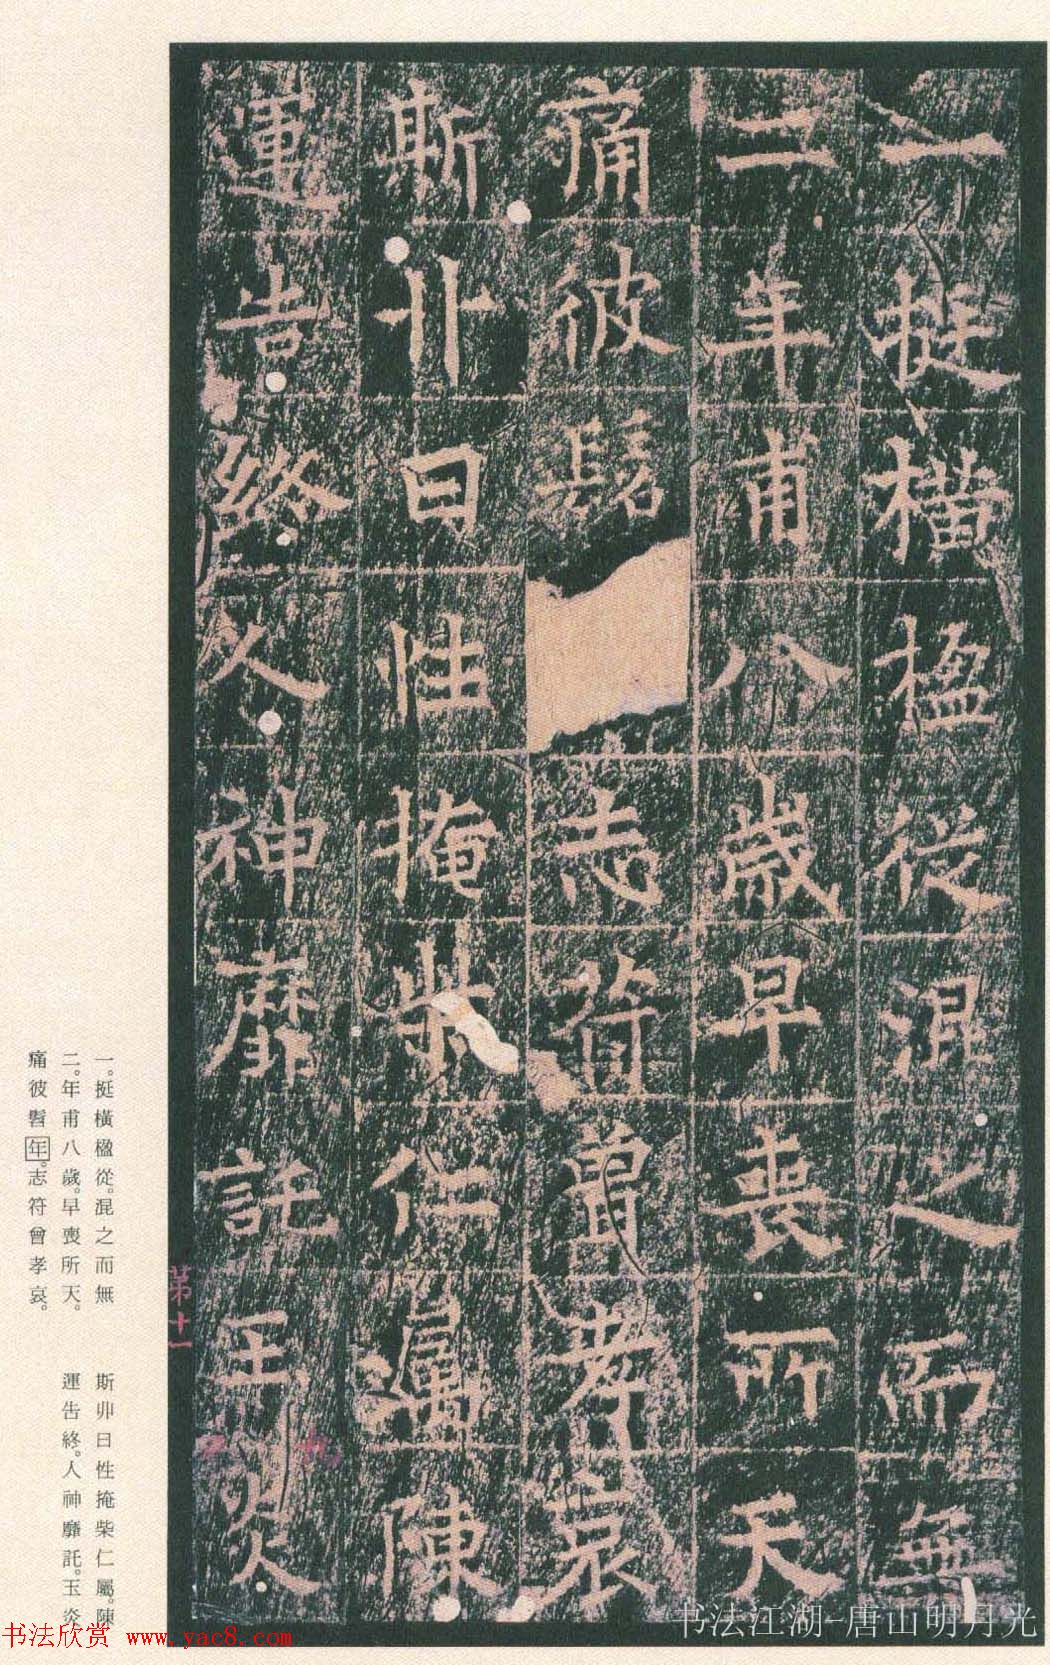 一挺橫楹從混之而無
二年甫八歲早喪所天
痛彼髫志符曾孝哀
斯丱日性掩柴仁屬陳
運告終人神靡託玉炎
一。挺橫楹從。混之而無
二。年甫八歲。早喪所天。
痛彼髫年。志符曾孝哀。
斯丱日性掩柴仁屬。陳
運告終。人神靡託。玉炎
第十一
书法欣赏 www.yac8.com
书法江湖-唐山明月光